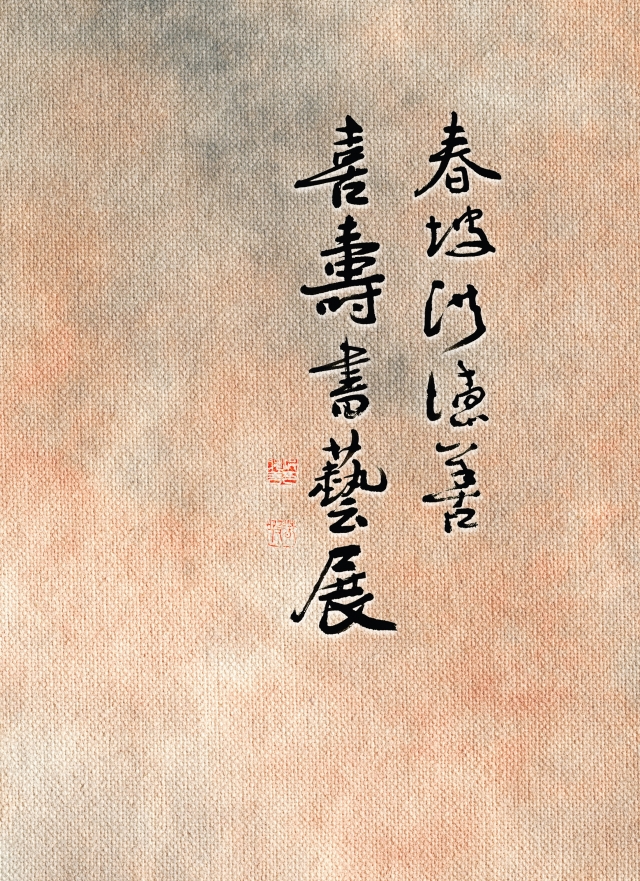 春坡洪德善
喜壽書藝展